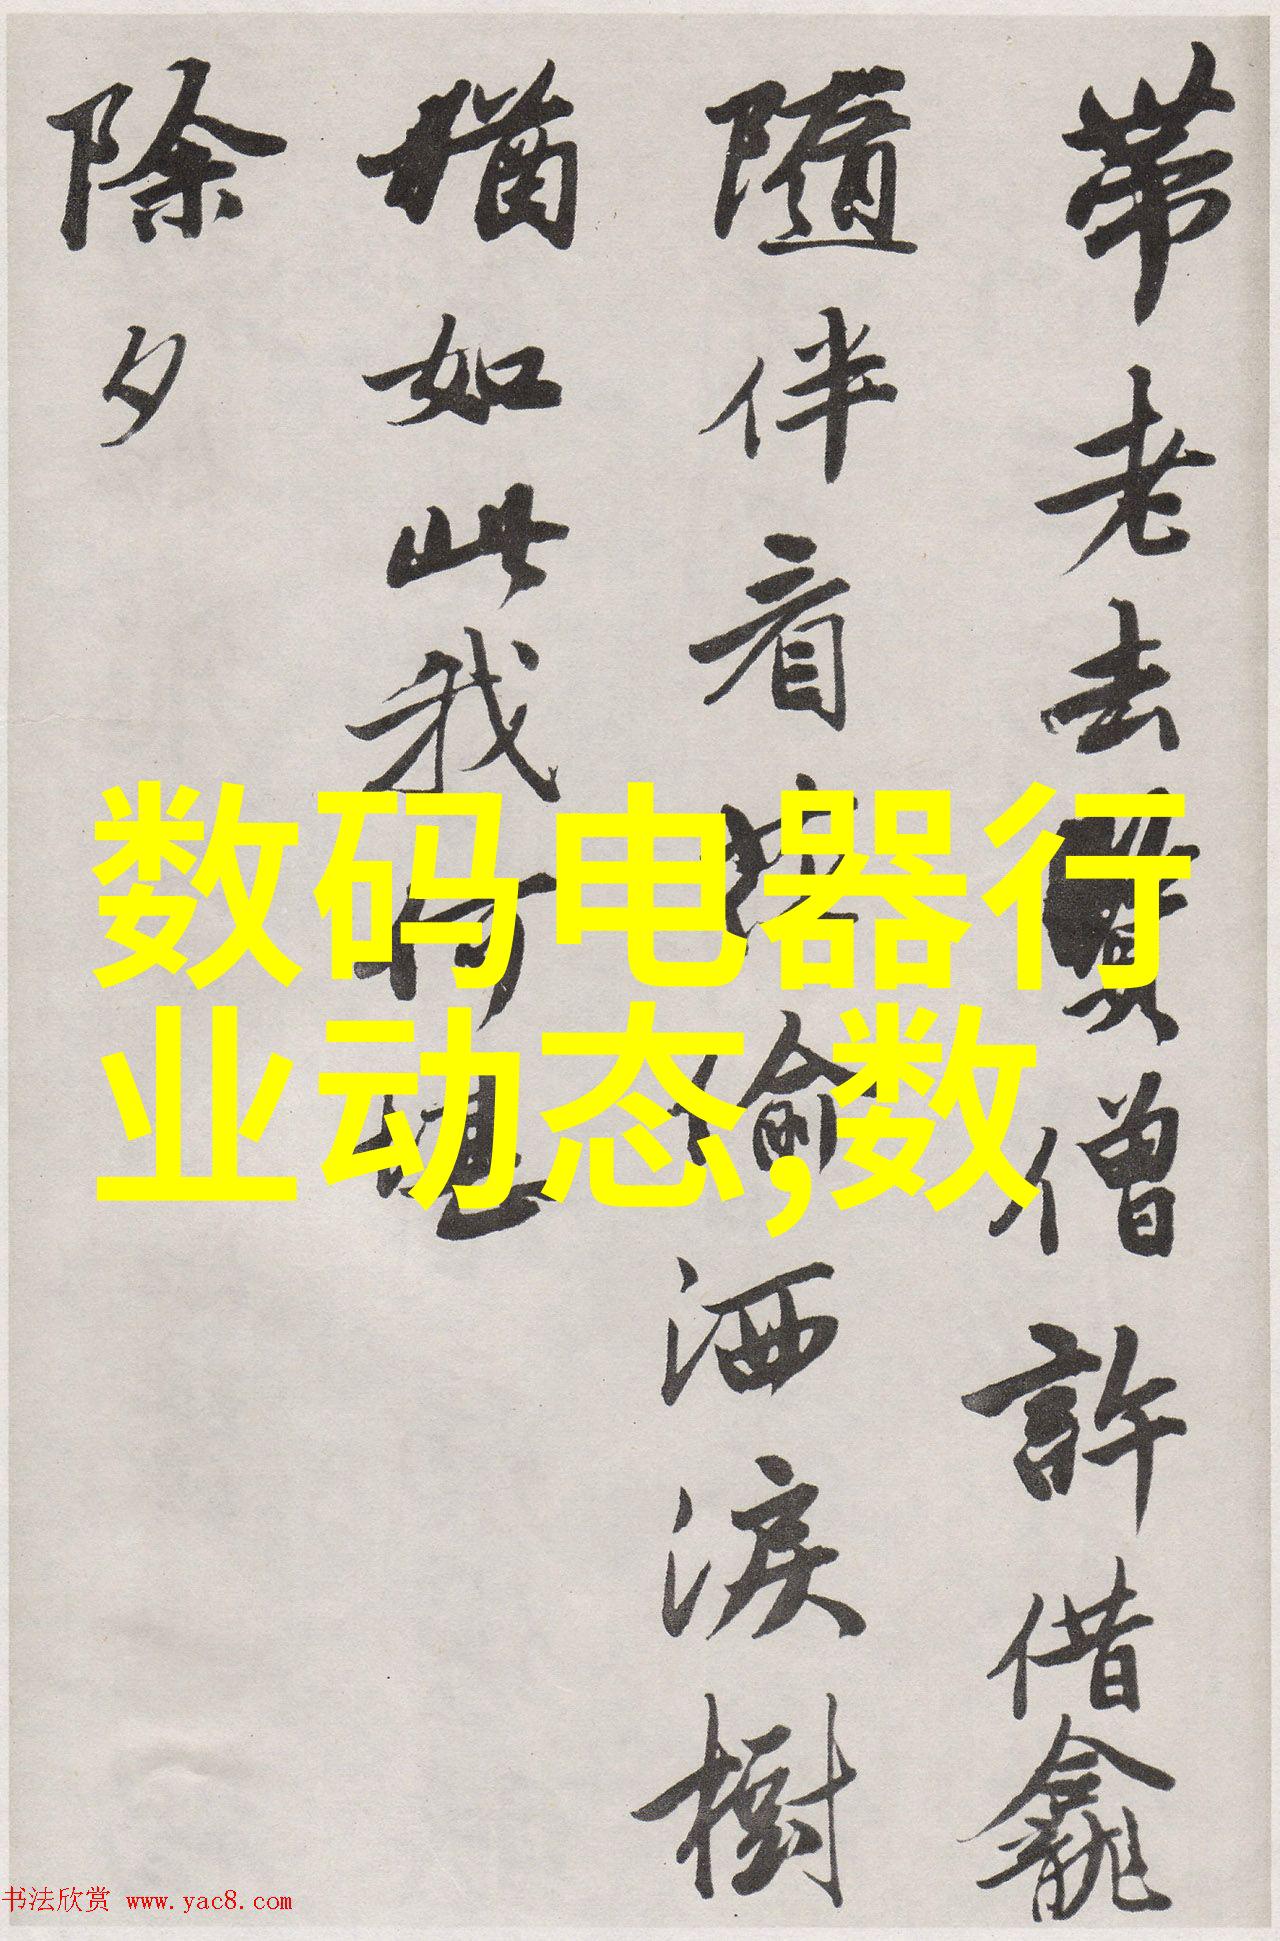 带老去 僧許借龕
隨伴看 偷洒淚樹
猶如此我何堪
除夕
数码电器行
业动态,数
书法欣赏 www.yac8.com